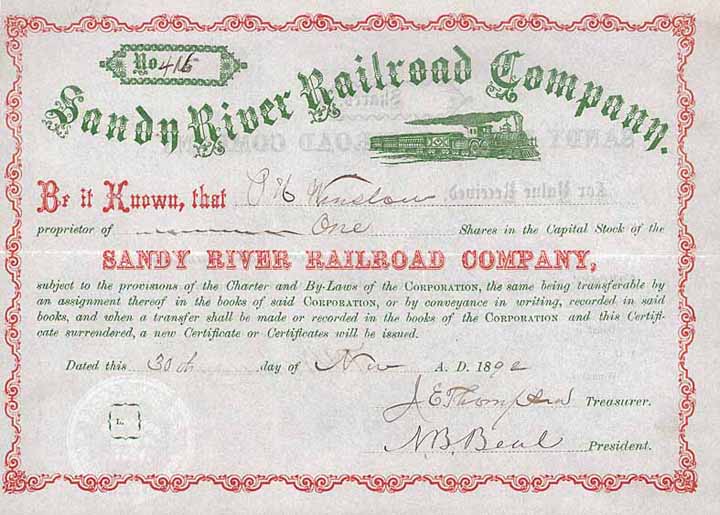 No. 416
Sandy River Railroad Company.
Be it Known, that P H Winslow
proprietor of One Shares in the Capital Stock of the
SANDY RIVER RAILROAD COMPANY,
subject to the provisions of the Charter and By-Laws of the CORPORATION, the same being transferable by
an assignment thereof in the books of said CORPORATION, or by conveyance in writing, recorded in said
books, and when a transfer shall be made or recorded in the books of the CORPORATION and this Certifi-
cate surrendered, a new Certificate or Certificates will be issued.
Dated this 30th day of Nov A. D. 1892
J E Thompson Treasurer.
L.
N. B. Beal President.